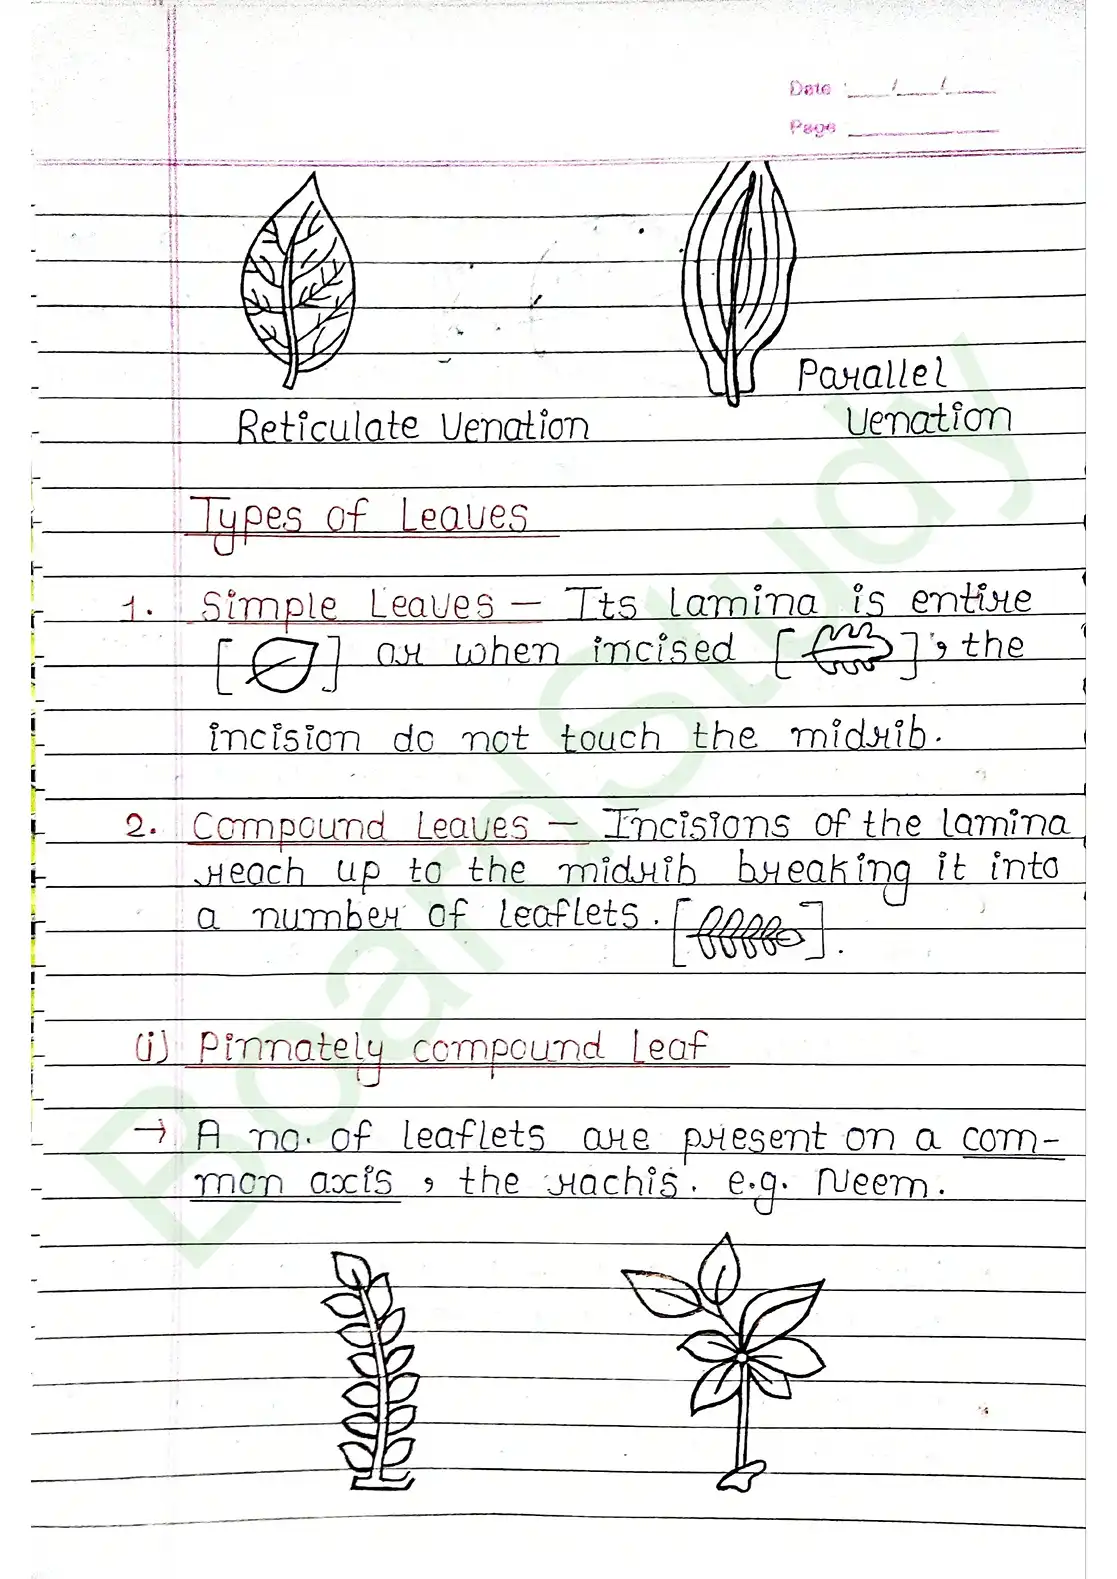 Date : __/__/__
Page ________
Reticulate Venation
Parallel
Venation
Types of Leaves
1. Simple Leaves – Its lamina is entire
[ ] or when incised [ ], the
incision do not touch the midrib.
2. Compound Leaves – Incisions of the lamina
reach up to the midrib breaking it into
a number of leaflets. [ ].
(i) Pinnately compound Leaf
→ A no. of leaflets are present on a com-
mon axis, the rachis. e.g. Neem.
BoardStudy